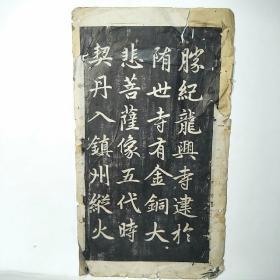 勝紀龍興寺建於
隋世寺有金銅大
悲菩薩像五代時
契丹入鎮州縱火